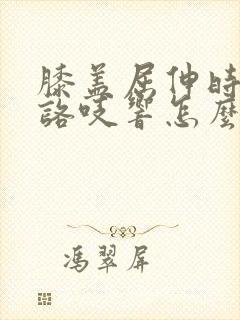 膝盖屈伸时
咯吱響怎麼
馮翠屏